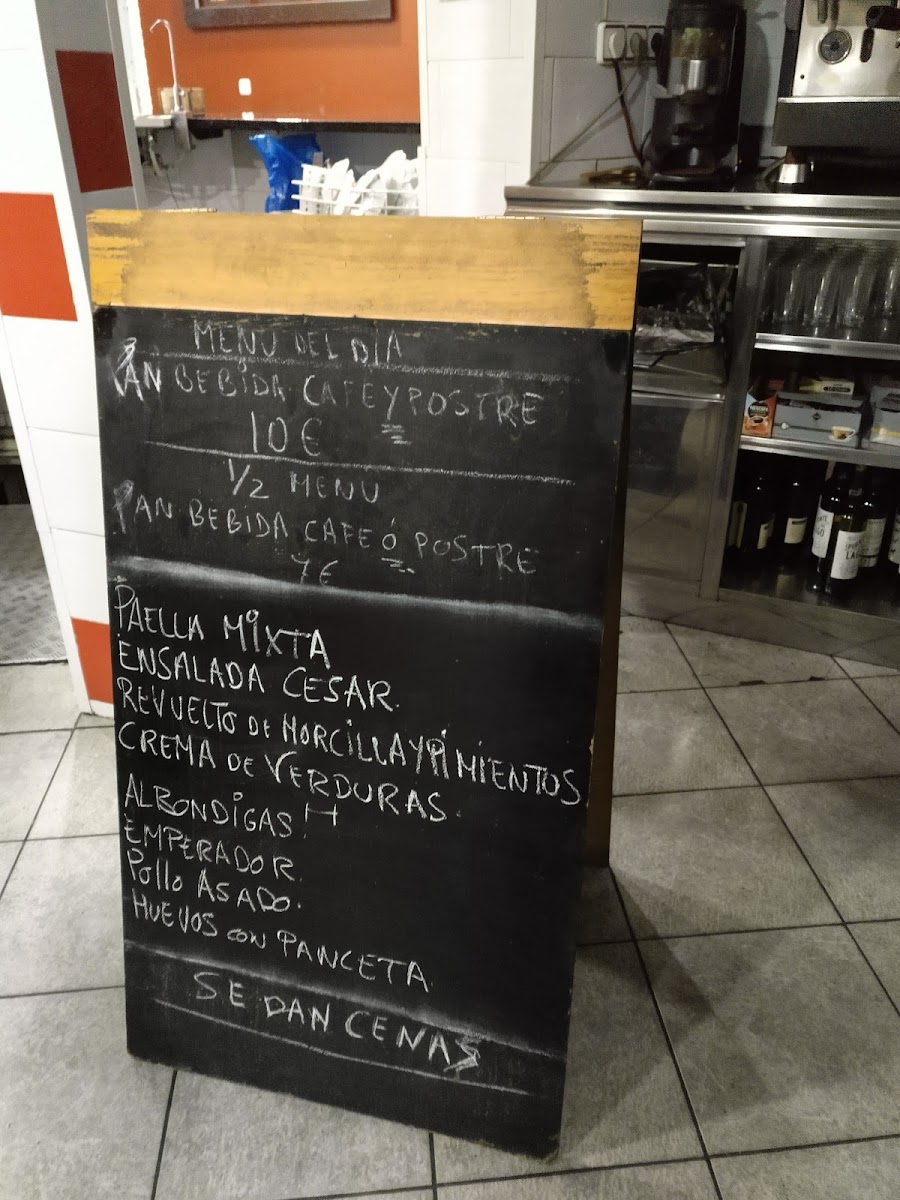 MENU DEL DIA
PAN BEBIDA CAFE Y POSTRE
10 €
1/2 MENU
PAN BEBIDA CAFE Ó POSTRE
7€
PAELLA MIXTA
ENSALADA CESAR.
REVUELTO DE MORCILLA Y PIMIENTOS
CREMA DE VERDURAS.
ALBONDIGAS.
EMPERADOR.
Pollo ASADO.
HUEVOS CON PANCETA.
SE DAN CENAS